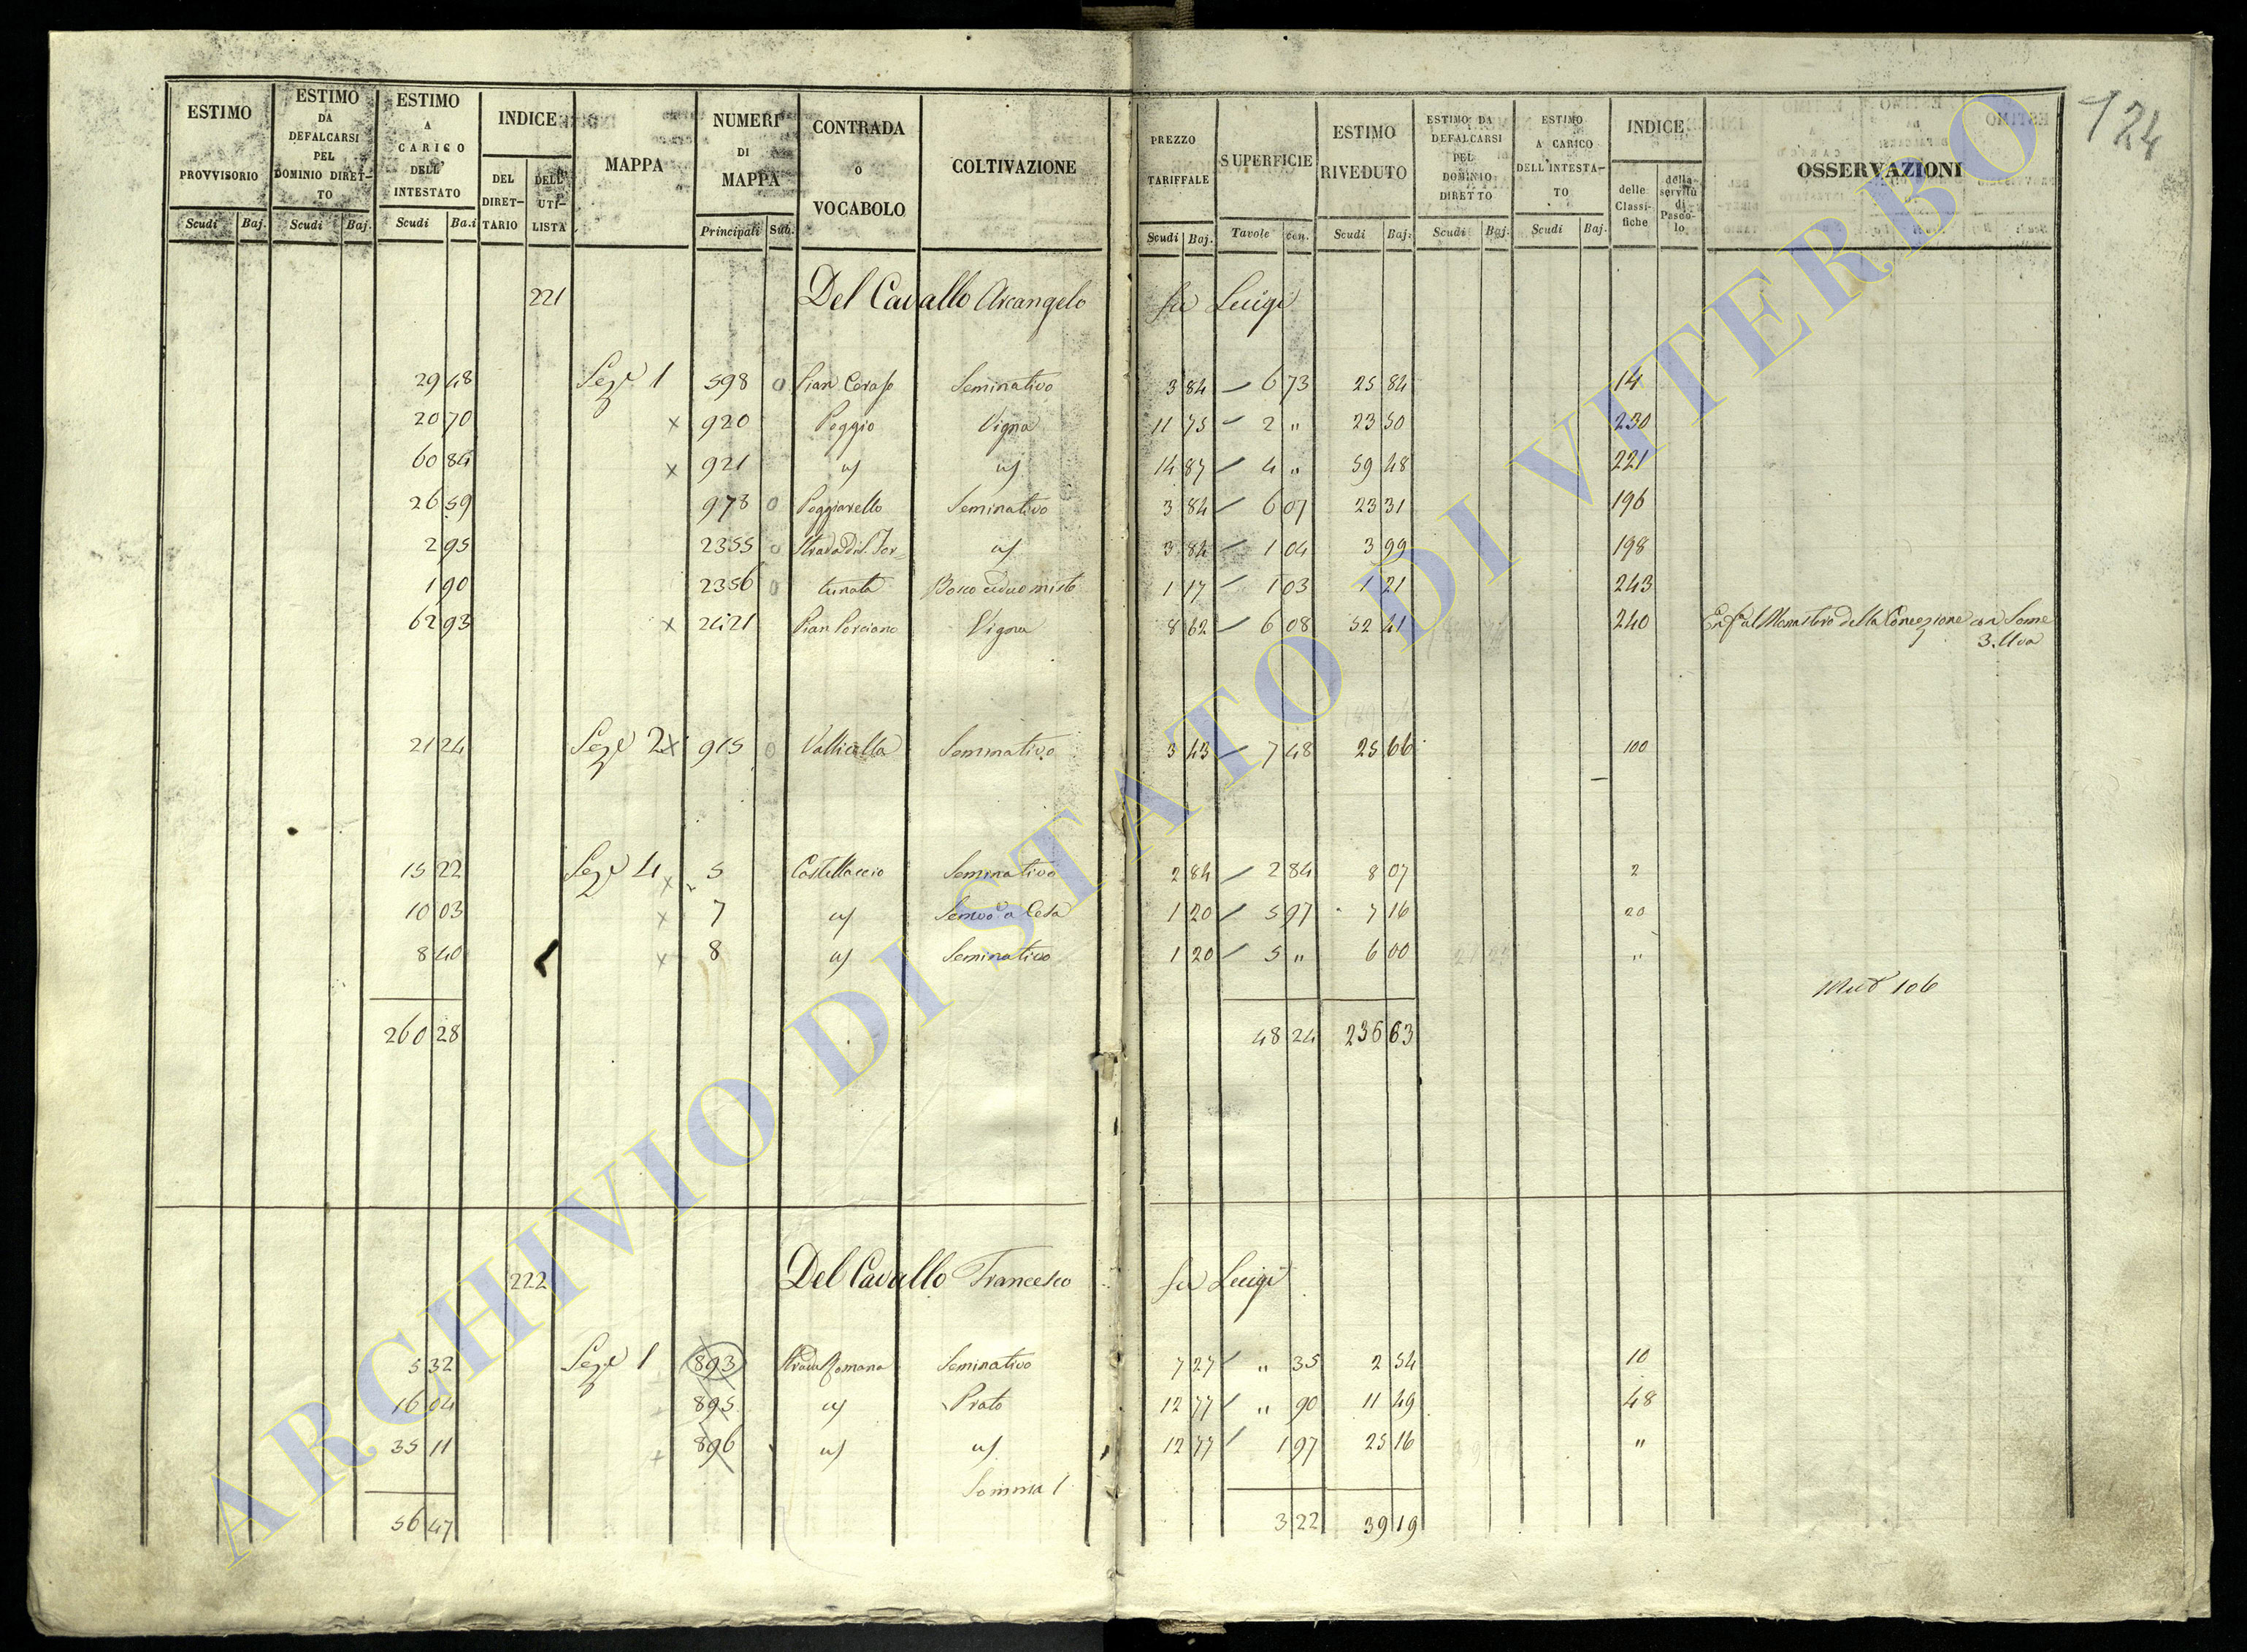 124
ESTIMO PROVVISORIO
ESTIMO DA DEFALCARSI PEL DOMINIO DIRET-TO
ESTIMO A CARICO DELL' INTESTATO
INDICE
DEL DIRET-TARIO
DELL' UTI-LISTA
MAPPA
NUMERI DI MAPPA
CONTRADA o VOCABOLO
COLTIVAZIONE
PREZZO TARIFFALE
SUPERFICIE
ESTIMO RIVEDUTO
ESTIMO DA DEFALCARSI PEL DOMINIO DIRETTO
ESTIMO A CARICO DELL'INTESTA-TO
INDICE
delle Classi-fiche
della servitù di Pasco-lo
OSSERVAZIONI
Scudi Baj. Scudi Baj. Scudi Ba.i Principali Sub. Scudi Baj. Tavole Cen. Scudi Baj. Scudi Baj. Scudi Baj.
221 Del Cavallo Arcangelo fu Luigi
29 48 Sez.e 1 598 0 Pian Ceraso Seminativo 3 84 6 73 25 84 14
20 70 x 920 Poggio Vigna 11 75 2 " 23 50 230
60 84 x 921 " " 14 87 4 " 59 48 221
26 59 978 0 Poggiarello Seminativo 3 84 6 07 23 31 196
2 95 2355 0 Strada di S. For 3 84 1 04 3 99 198
1 90 2356 0 tunata Bosco ceduo misto 1 17 1 03 1 21 243
62 93 x 2421 Pian Porciano Vigna 8 62 6 08 52 41 240 Enf.a al Monastero della Concezione Some
3. Uva
21 24 Sez.e 2 x 915 0 Vallicella Seminativo 3 43 7 48 25 66 100
15 22 Sez.e 4 x 5 Castellaccio Seminativo 2 84 2 84 8 07 2
10 03 x 7 " Semvo a Cesa 1 20 5 97 7 16 20
8 40 x 8 " Seminativo 1 20 5 " 6 00 "
106
260 28 48 24 236 63
222 Del Cavallo Francesco fu Luigi
5 32 Sez.e 1 893 Strada Romana Seminativo 7 27 " 35 2 54 10
16 04 895 " Prato 12 77 " 90 11 49 48
35 11 896 " " 12 77 1 97 25 16 "
Somma 1
56 47 3 22 39 19
ARCHIVIO DI STATO DI VITERBO